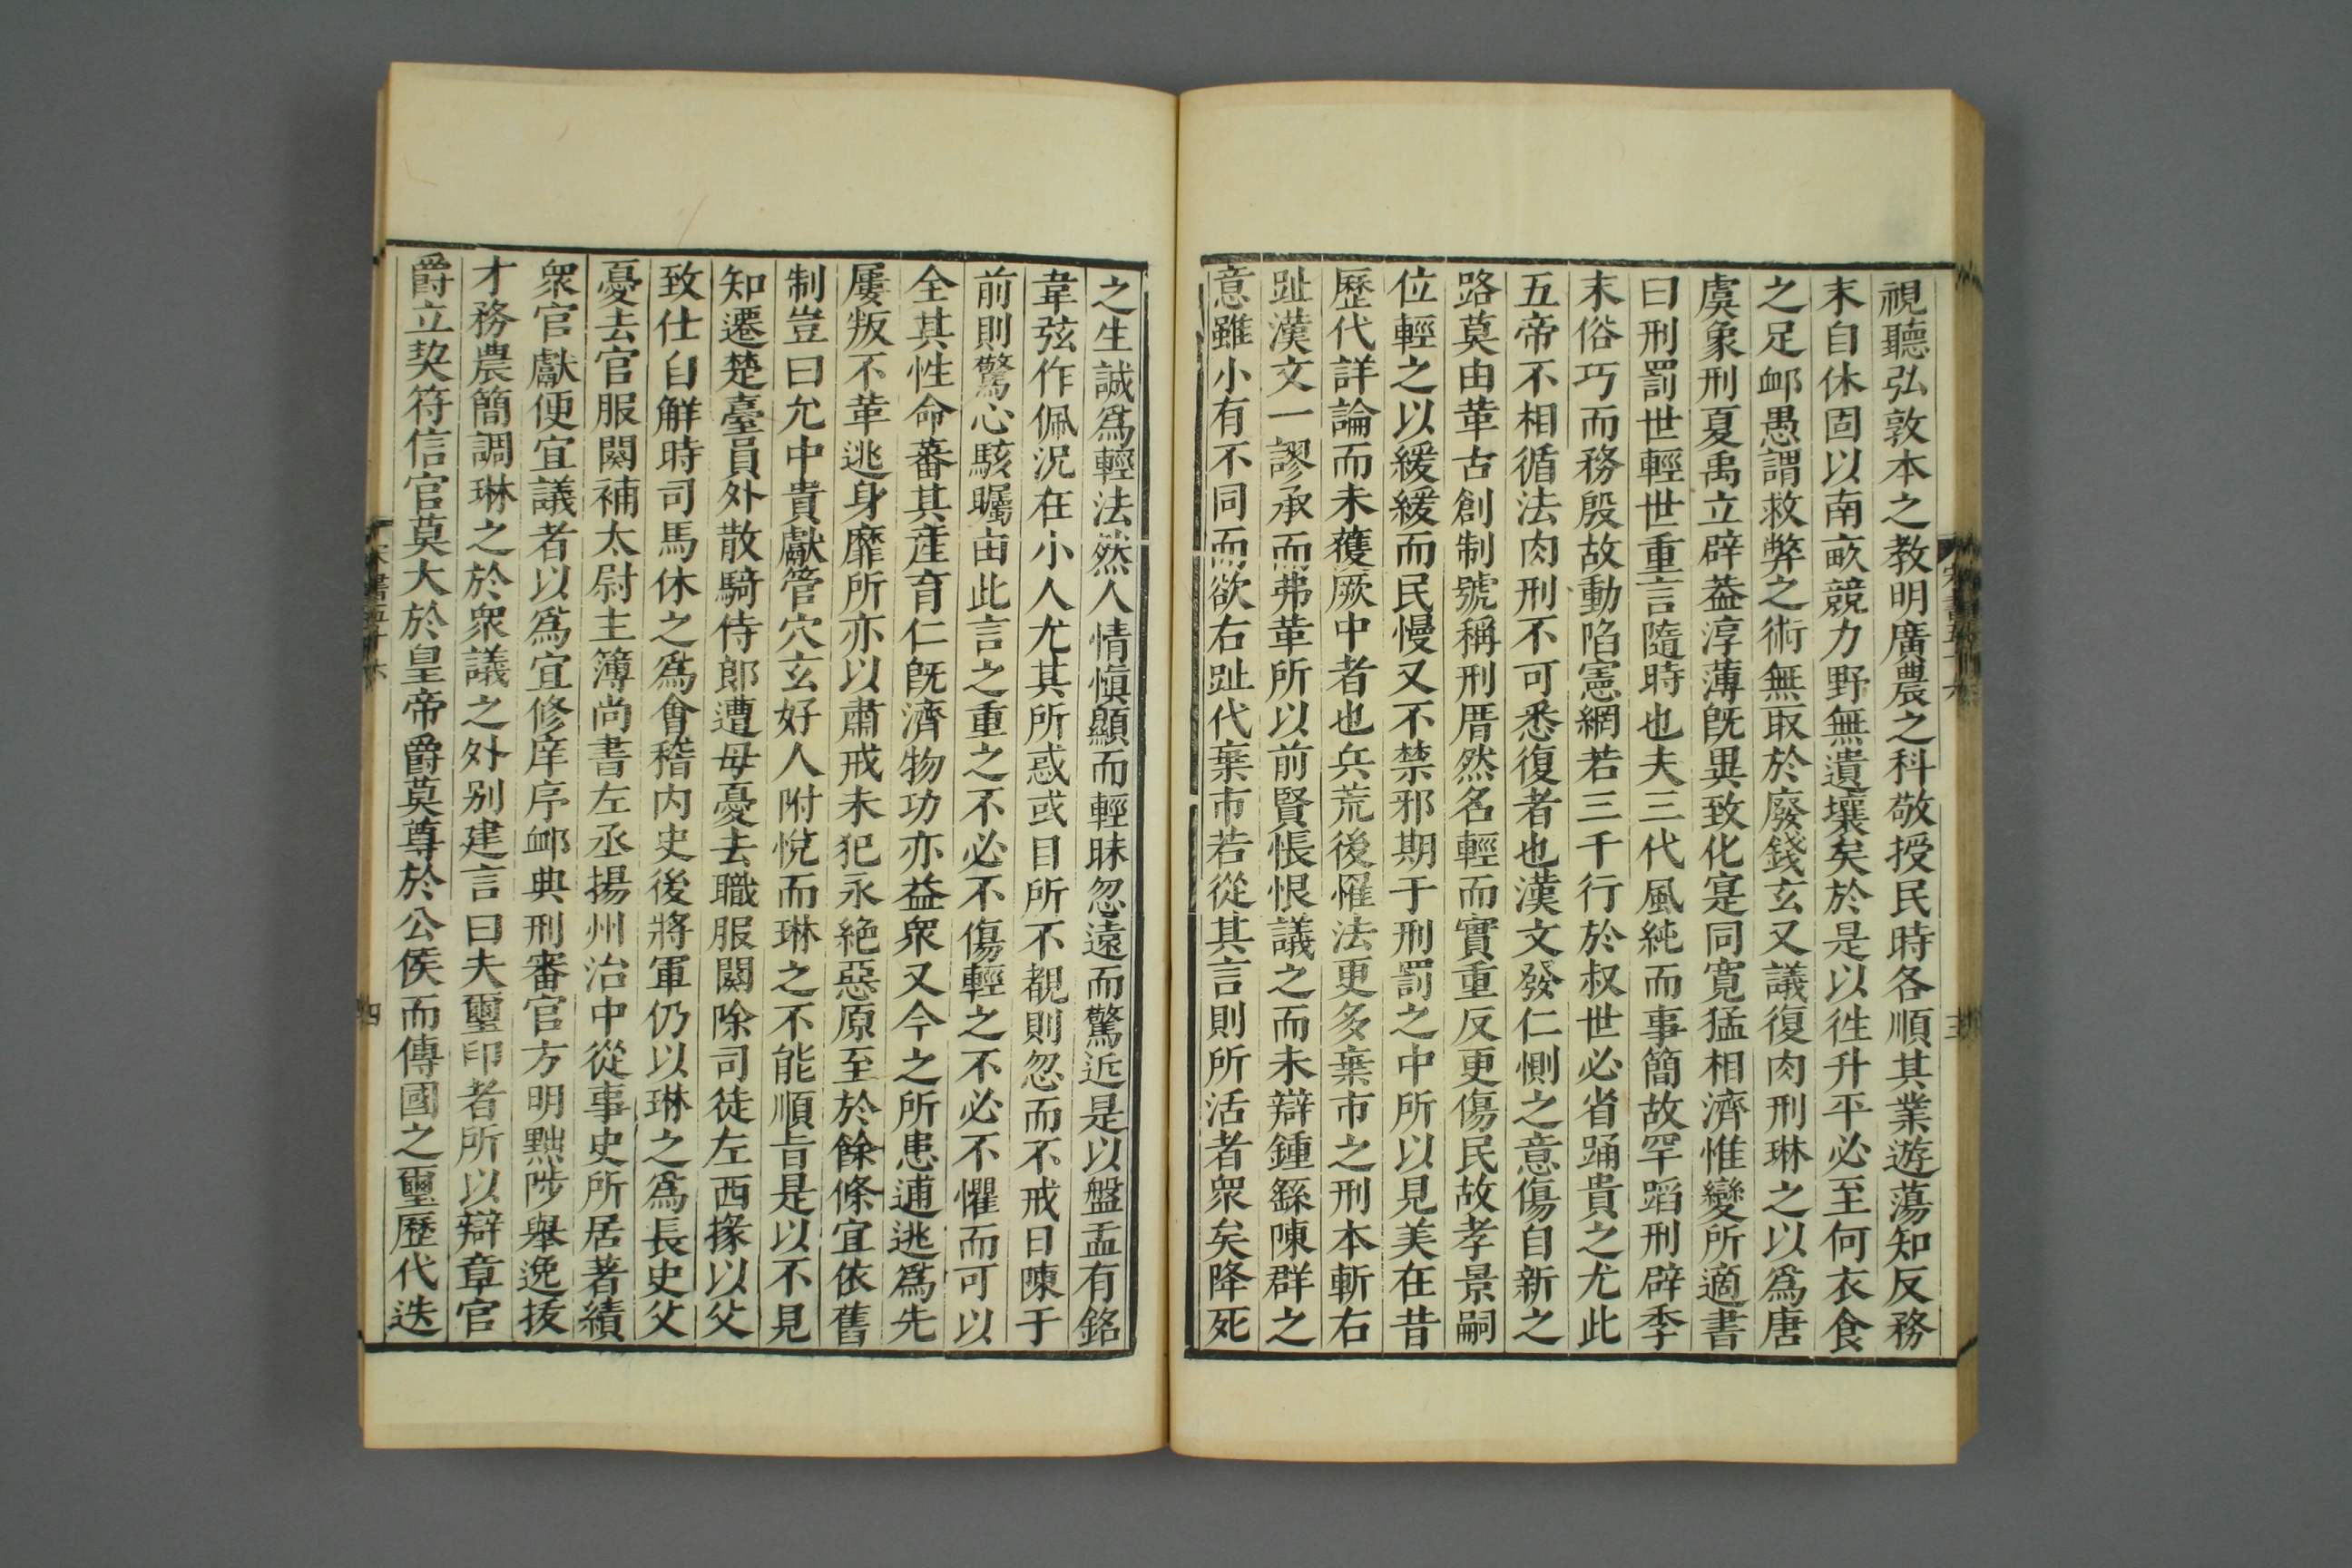 視聽弘敦本之教明廣農之科敬授民時各順其業遊蕩知反務
末自休固以南畝競力野無遺壤矣於是以徃升平必至何衣食
之足邺愚謂救弊之術無取於廢錢玄又議復肉刑琳之以爲唐
虞象刑夏禹立辟葢淳薄旣異致化寔同寛猛相濟惟變所適書
曰刑罰世輕世重言隨時也夫三代風純而事簡故罕蹈刑辟季
末俗巧而務殷故動陷憲網若三千行於叔世必省踊貴之尤此
五帝不相循法肉刑不可悉復者也漢文發仁惻之意傷自新之
路莫由革古創制號稱刑厝然名輕而實重反更傷民故孝景嗣
位輕之以緩緩而民慢又不禁邪期于刑罰之中所以見美在昔
歷代詳論而未獲厥中者也兵荒後罹法更多棄市之刑本斬右
趾漢文一謬承而弗革所以前賢悵恨議之而未辯鍾繇陳群之
意雖小有不同而欲右趾代棄市若從其言則所活者衆矣降死
之生誠爲輕法然人情慎顯而輕昧忽遠而驚近是以盤盂有銘
韋弦作佩況在小人尤其所惑或目所不覩則忽而不戒日陳于
前則驚心駭矚由此言之重之不必不傷輕之不必不懼而可以
全其性命蕃其產育仁旣濟物功亦益衆又今之所患逋逃爲先
屢叛不革逃身靡所亦以肅戒未犯永絕惡原至於餘條宜依舊
制豈曰允中貴獻管穴玄好人附悅而琳之不能順旨是以不見
知遷楚臺員外散騎侍郎遭母憂去職服闋除司徒左西掾以父
致仕自解時司馬休之爲會稽內史後將軍仍以琳之爲長史父
憂去官服闋補太尉主簿尚書左丞揚州治中從事史所居著績
衆官獻便宜議者以爲宜修庠序邺典刑審官方明黜陟舉逸拔
才務農簡調琳之於衆議之外別建言曰夫璽印者所以辯章官
爵立契符信官莫大於皇帝爵莫尊於公侯而傳國之璽歷代迭
宋書五十六
四